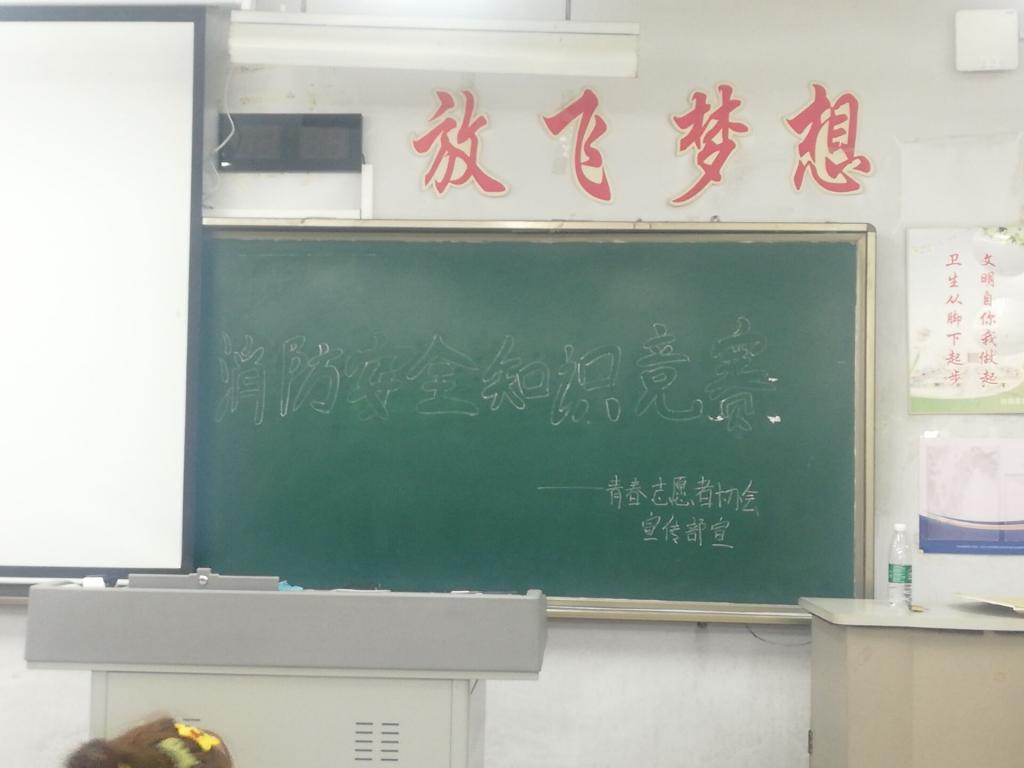 放飞梦想
消防安全知识竞赛
——青春志愿者协会
宣传部宣
文明自你我做起
卫生从脚下起步